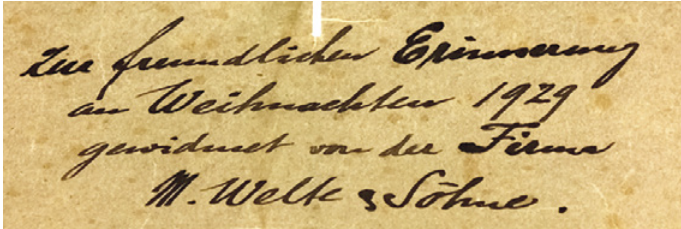 Zur freundlichen Erinnerung
an Weihnachten 1929
gewidmet von der Firma
M. Welte & Söhne.